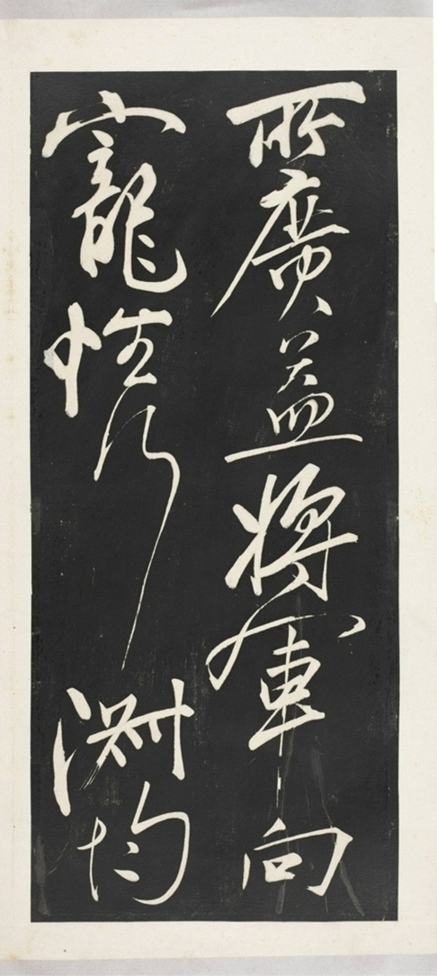 所廣益將軍向
寵性行淑均